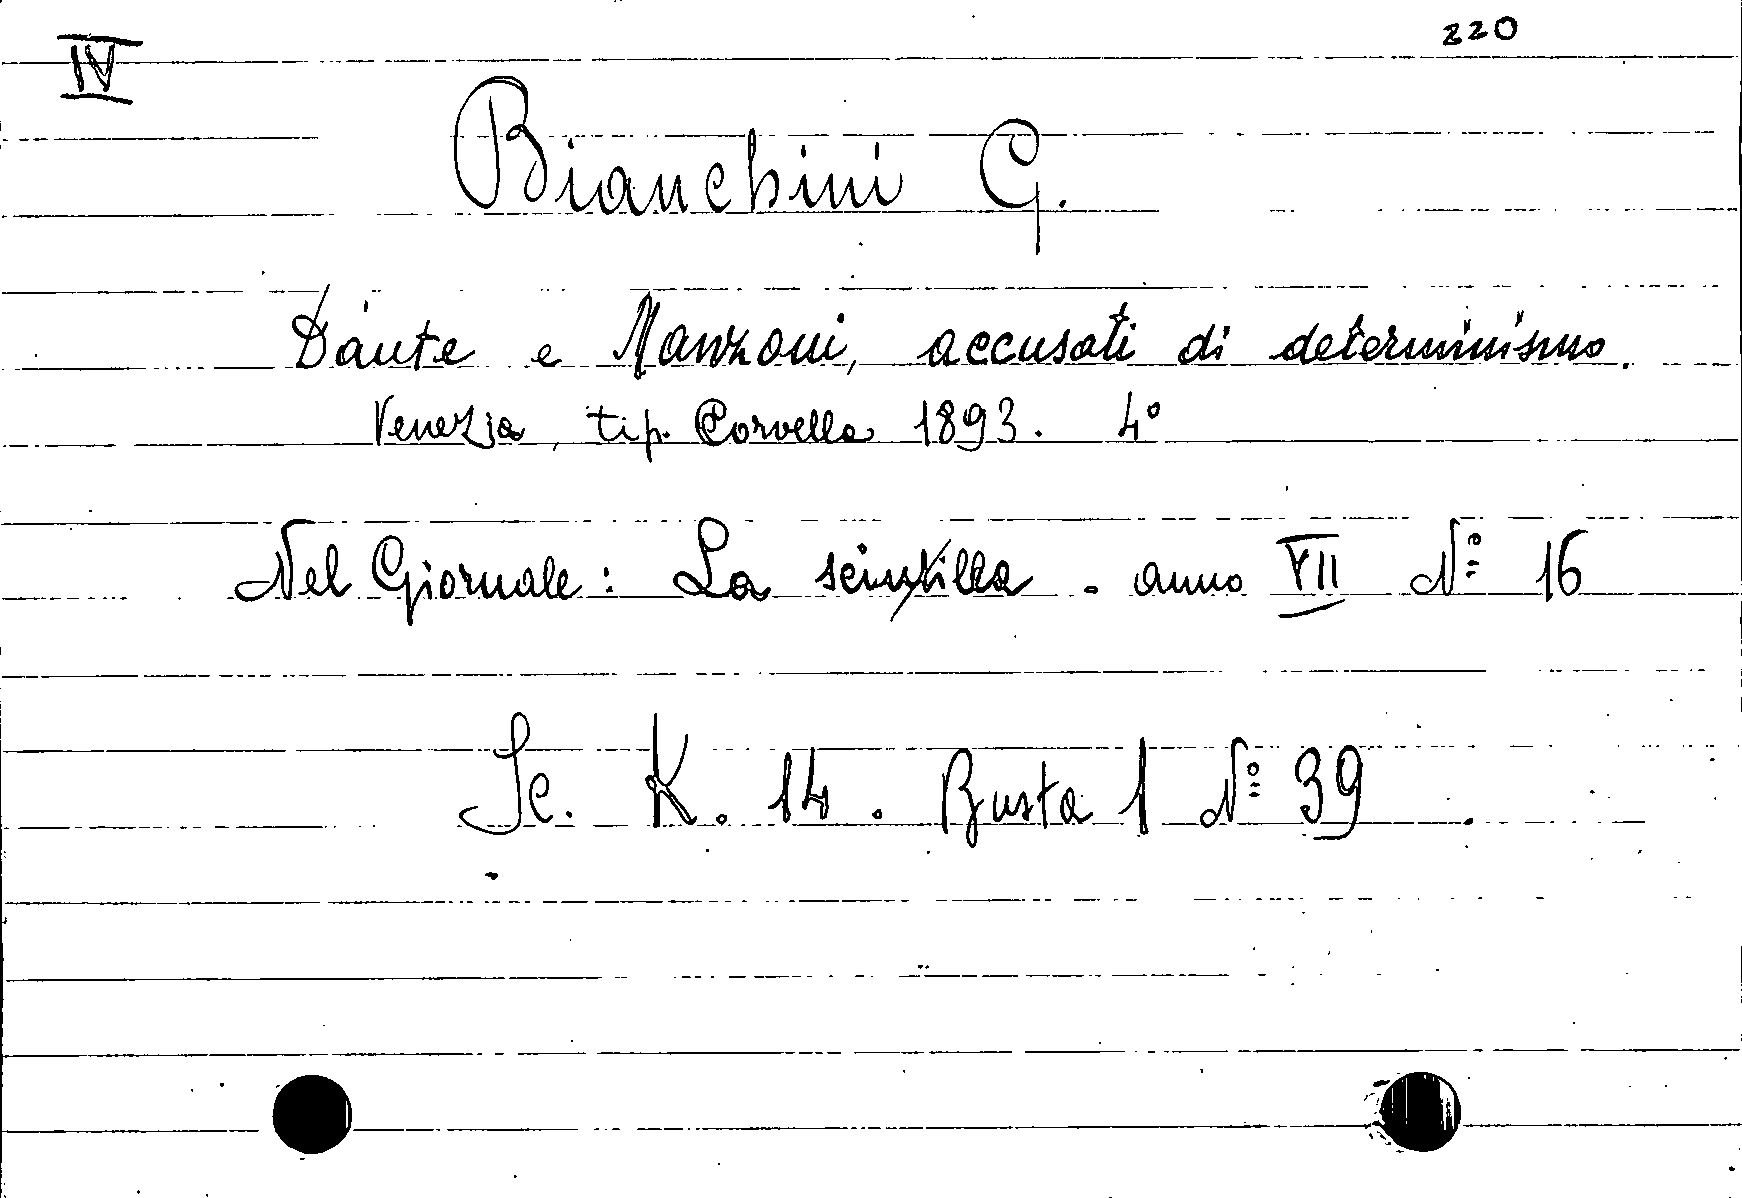 220
IV
Bianchini G.
Dante e Manzoni, accusati di determinismo.
Venezia, tip. Corvella 1893. 4°
Nel Giornale: La scintilla - anno VII N° 16
Sc. K. 14. Busta 1 N° 39